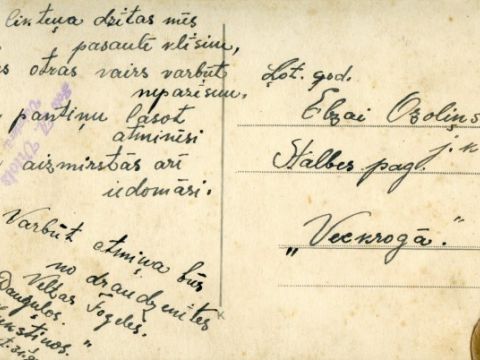 likteņa dzītas mēs
pasaulē klīsim,
otras vairs varbūt
nepazīsim.
pantiņu lasot
atminēsi
aizmirstās arī
iedomāsi.
Varbūt atmiņa būs
no draudzenītes
Veltas Fogeles.
Ļot. god.
Elzai Ozoliņ
j. k
Stalbes pag.
„Veckrogā."